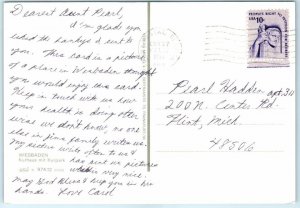 Dearest Aunt Pearl,
I'm glad you
liked the hankys I sent to
you. This card is a picture
of a place in Wiesbaden thought
you would enjoy this card.
Keep in touch with us how
your health is doing other
wise we don't know, no one
else in family writes us.
My sisters write often to us &
has sent us pictures
very nice.
may God Bless & keep you in his
hands. Love Carol
WIESBADEN
Kurhaus mit Kurpark
PEOPLE'S RIGHT
USA 10c
Pearl Hadden apt 311
200 N. Center Rd
Flint, Mich.
48506